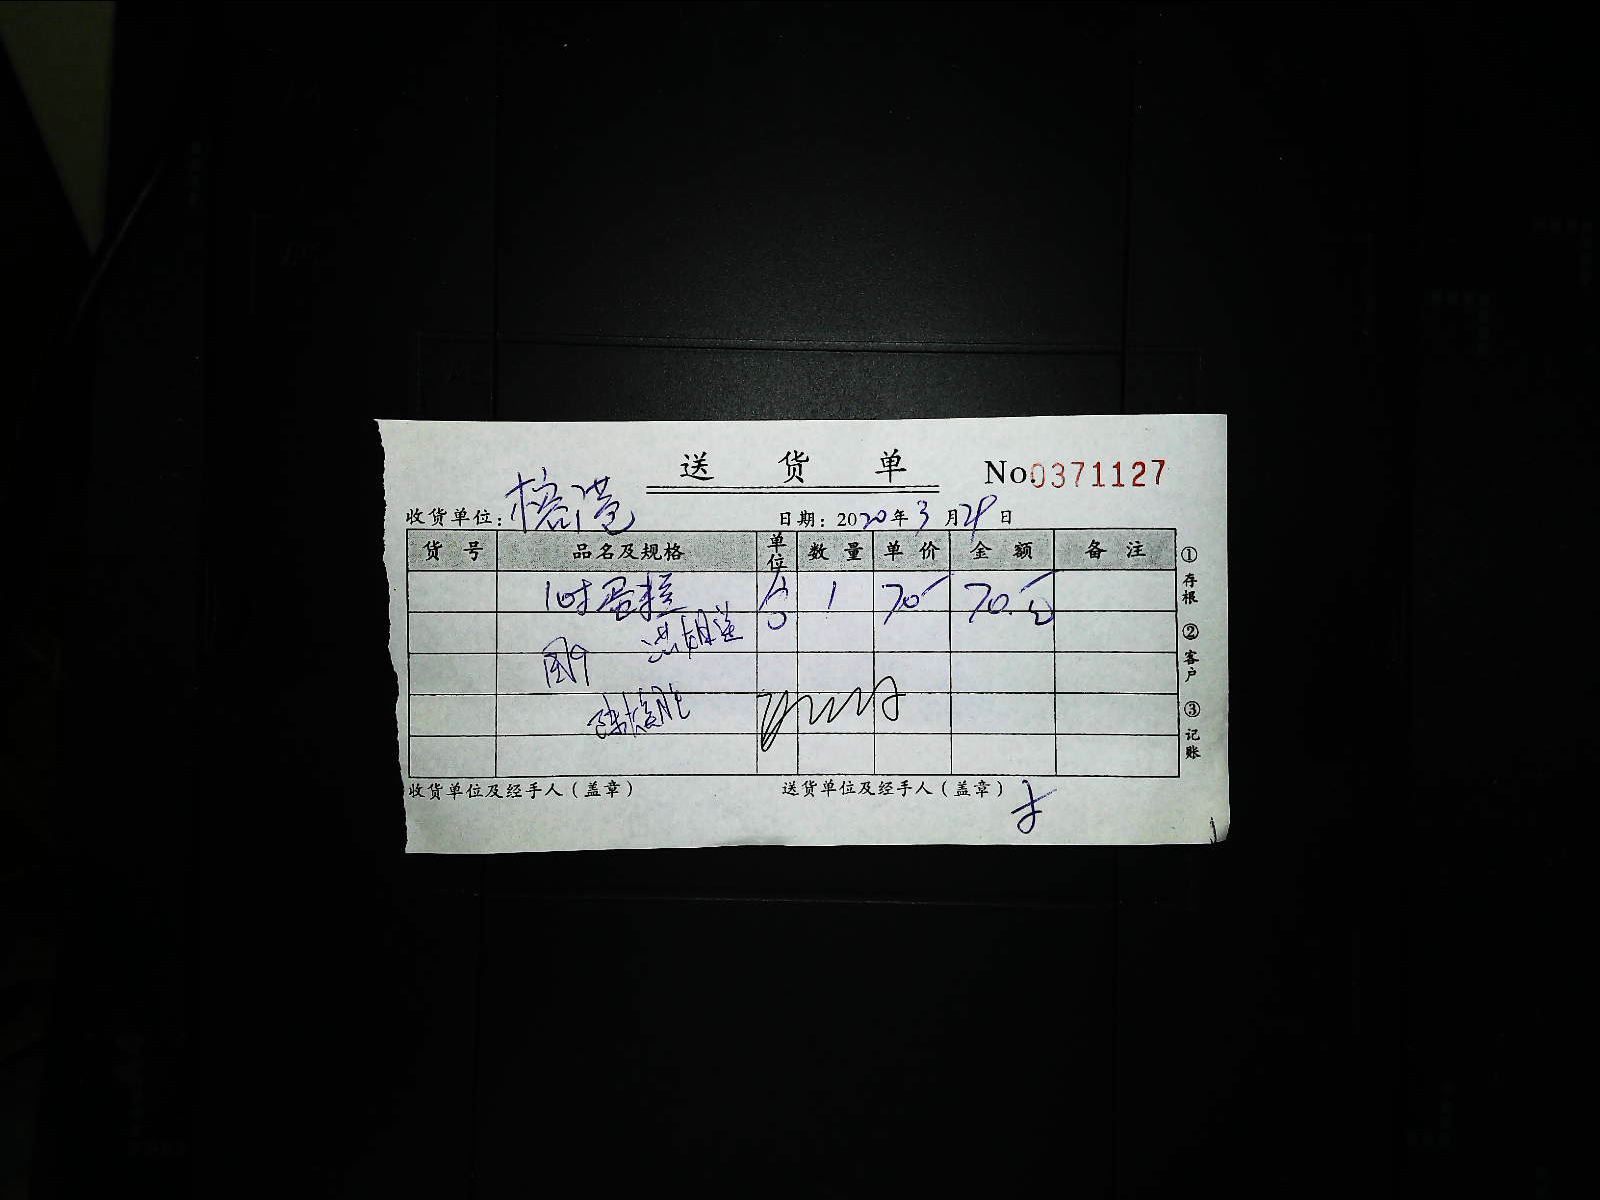 送 货 单 No.0371127
收货单位: 榕港 日期: 2020年3月29日
货 号 品名及规格 单位 数 量 单 价 金 额 备 注
10寸蛋糕 台 1 70 70.元
收货单位及经手人(盖章) 送货单位及经手人(盖章)
①存根 ②客户 ③记账